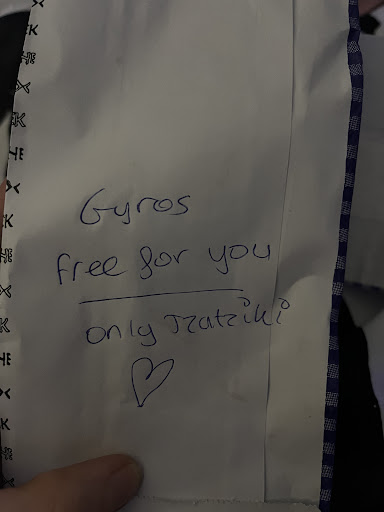 Gyros
free for you
only Tzatziki